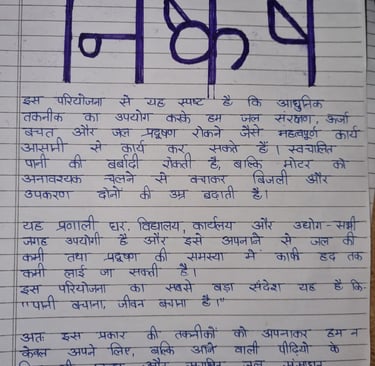 निष्कर्ष
इस परियोजना से यह स्पष्ट है कि आधुनिक
तकनीक का उपयोग करके हम जल संरक्षण, ऊर्जा
बचत और जल प्रदूषण रोकने जैसे महत्वपूर्ण कार्य
आसानी से कार्य कर सकते हैं। स्वचालित
पानी की बर्बादी रोकती है, बल्कि मोटर को
अनावश्यक चलने से बचाकर बिजली और
उपकरण दोनों की उम्र बढ़ाती है।
यह प्रणाली घर, विद्यालय, कार्यालय और उद्योग - सभी
जगह उपयोगी है और इसे अपनाने से जल की
कमी तथा प्रदूषण की समस्या में काफी हद तक
कमी लाई जा सकती है।
इस परियोजना का सबसे बड़ा संदेश यह है कि-
"पानी बचाना, जीवन बचाना है।"
अतः इस प्रकार की तकनीकों को अपनाकर हम न
केवल अपने लिए, बल्कि आने वाली पीढ़ियों के